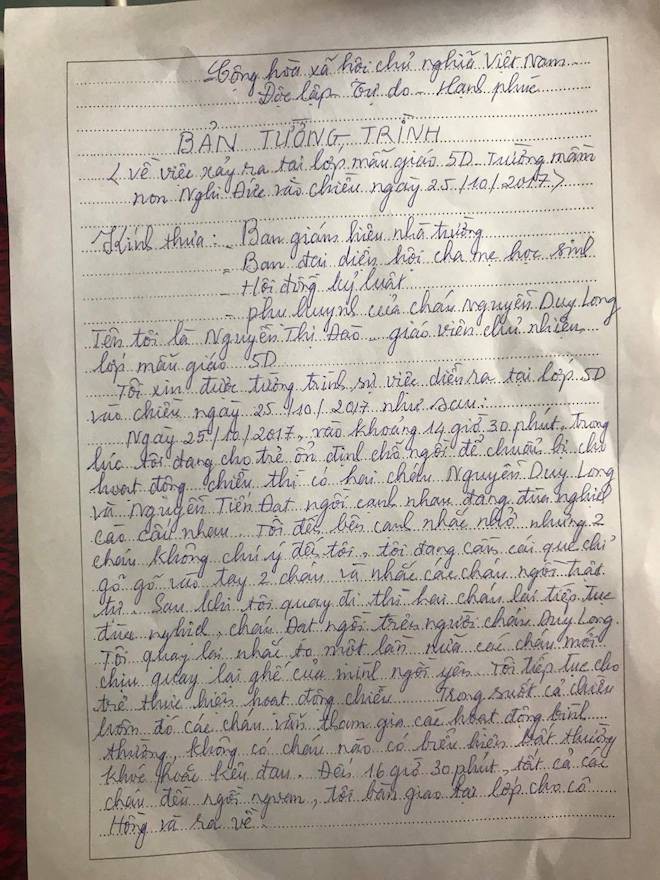 Cộng hòa xã hội chủ nghĩa Việt Nam
Độc lập - Tự do - Hạnh phúc
BẢN TƯỜNG TRÌNH
(Về việc xảy ra tại lớp mẫu giáo 5D. Trường mầm
non Nghi Đức vào chiều ngày 25/10/2017)
Kính thưa: - Ban giám hiệu nhà trường
- Ban đại diện hội cha mẹ học sinh
- Hội đồng kỷ luật
- phụ huynh của cháu Nguyễn Duy Long
Tên tôi là Nguyễn Thị Đào - giáo viên chủ nhiệm
lớp mẫu giáo 5D
Tôi xin được tường trình sự việc diễn ra tại lớp 5D
vào chiều ngày 25/10/2017 như sau:
Ngày 25/10/2017, vào khoảng 14 giờ 30 phút, trong
lúc tôi đang cho trẻ ổn định chỗ ngồi để chuẩn bị cho
hoạt động chiều thì có hai cháu Nguyễn Duy Long
và Nguyễn Tiến Đạt ngồi cạnh nhau đang đùa nghịch
cào cấu nhau. Tôi đến bên cạnh nhắc nhở nhưng 2
cháu không chú ý đến tôi, tôi đang cầm cái que chỉ
gõ gõ vào tay 2 cháu và nhắc các cháu ngồi trật
tự. Sau khi tôi quay đi thì hai cháu lại tiếp tục
đùa nghịch, cháu Đạt ngồi trên người cháu Duy Long.
Tôi quay lại nhắc to một lần nữa các cháu mới
chịu quay lại ghế của mình ngồi yên. Tôi tiếp tục cho
trẻ thực hiện hoạt động chiều. Trong suốt cả chiều
hôm đó các cháu vẫn tham gia các hoạt động bình
thường, không có cháu nào có biểu hiện bất thường
khóc hoặc kêu đau. Đến 16 giờ 30 phút, tất cả các
cháu đều ngồi ngoan, tôi bàn giao tại lớp cho cô
Hồng và ra về.